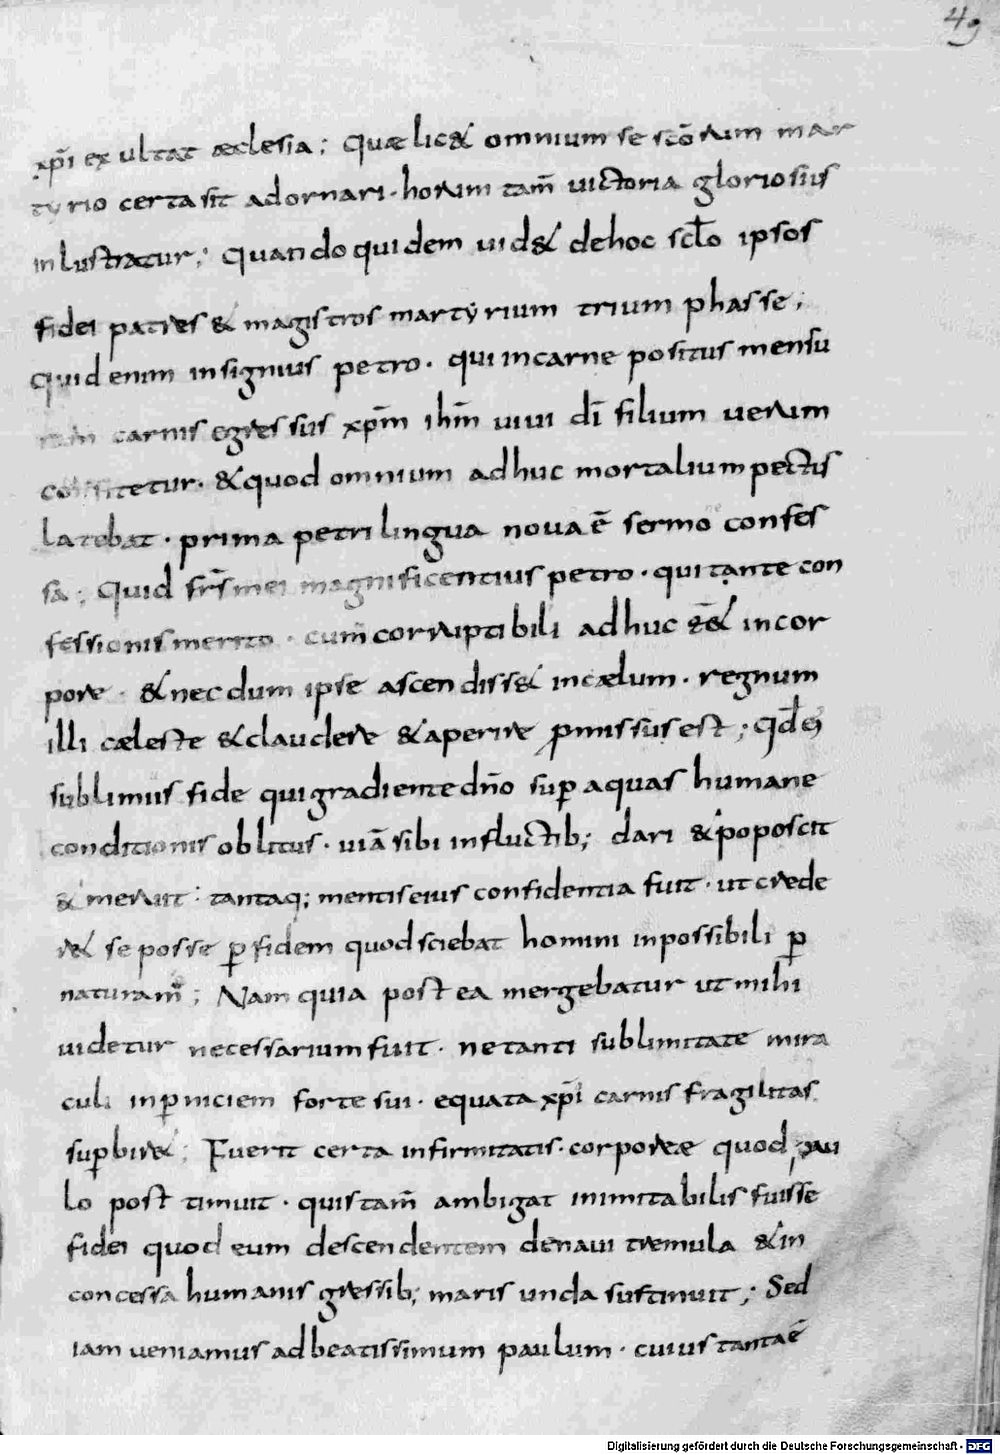 49
xp̄i exultat æclesia; Quæ lic& omnium se scōrum mar
tyrio certa sit adornari· horum tam̄ uictoria gloriosius
inlustratur; Quando quidem uid& dehoc sclo ipsos
fidei patres & magistros martẏrium triumphasse;
Quid enim insignius petro· qui incarne positus mensu
ram carnis egressus xp̄m ihm̄ uiui di filium uerum
confitetur· & quod omnium adhuc mortalium pectus
latebat· prima petri lingua noua ē sermo confes
sa; Quid frs̄ mei magnificentius petro· qui tante con
fessionis merito· cum corruptibili adhuc ēe& incor
pore· & necdum ipse ascendiss& incælum· regnum
illi cæleste & claudere & aperire p̱missus est; Qd
sublimius fide qui gradiente dn̄o sup̱ aquas humane
conditionis oblitus· uiā sibi influctib; dari & poposcit
& meruit· tantaq; mentis eius confidentia fuit· ut crede
r& se posse p̱ fidem quod sciebat homini inpossibili p̱
naturam; Nam quia post ea mergebatur ut mihi
uidetur necessarium fuit· ne tanti sublimitate mira
culi inp̱niciem forte sui· equata xp̄i carnis fragilitas
sup̱bir&; Fuerit certa infirmitatis· corporeæ quod pau
lo post timuit· quis tam̄ ambigat inimitabilis fuisse
fidei quod eum descendentem denaui tremula & in
concessa humanis gressib; maris unda sustinuit; Sed
iam ueniamus ad beatissimum paulum· cuius tanta ē
Digitalisierung gefördert durch die Deutsche Forschungsgemeinschaft - DFG